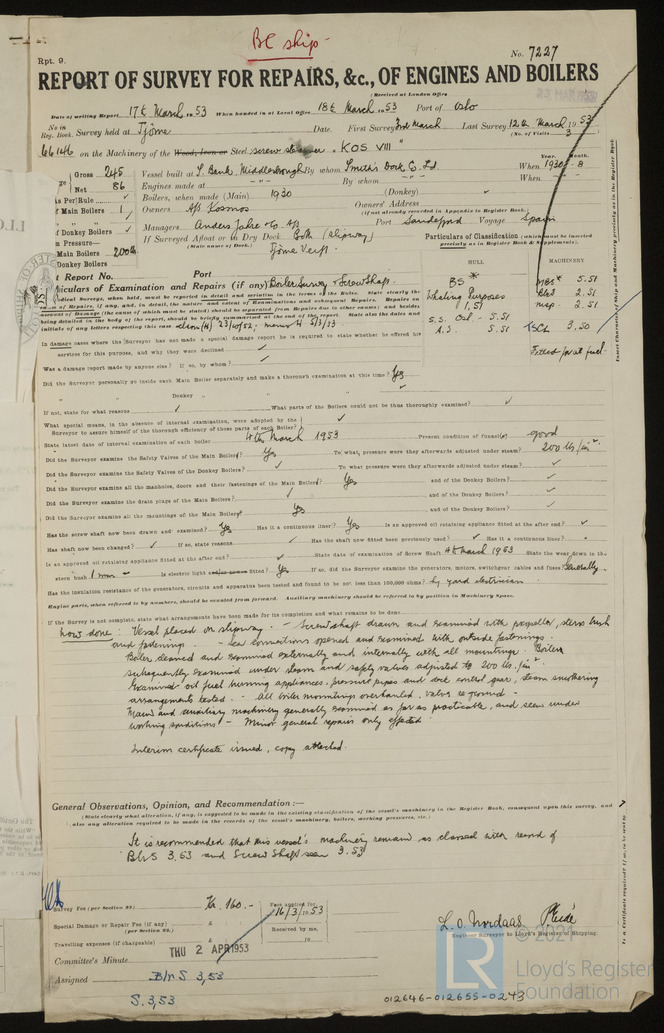 BC ship
Rpt. 9.
No. 7227
REPORT OF SURVEY FOR REPAIRS, &c., OF ENGINES AND BOILERS
(Received at London Office
Date of writing Report 17th March 1953 When handed in at Local Office 18th March 1953 Port of Oslo
No. in Reg. Book. Survey held at Tjöme Date. First Survey 3rd March Last Survey 12th March 1953
(No. of Visits 3
66146 on the Machinery of the Wood, Iron or Steel screw steamer "KOS VIII"
Gross 245 Vessel built at S. Bank, Middlesbrough By whom Smith's Dock Co. Ld. When 1930 - 8
Net 86 Engines made at By whom When
Boilers, when made (Main) 1930 (Donkey)
Main Boilers 1 Owners A/s Kosmos Owners' Address
(if not already recorded in Appendix to Register Book.)
Donkey Boilers Managers Anders Jahre & Co. A/s Port Sandefjord Voyage Spain
If Surveyed Afloat or in Dry Dock Both (slipway)
(State name of Dock.) Tjöme Verft
Main Boilers 200 lb
Donkey Boilers
Particulars of Classification (which must be inserted precisely as in Register Book & Supplements).
HULL MACHINERY
BS* MBS* 5.51
Whaling Purposes BLS 2.51
1,51 2.51
S.S. Osl - 5.51 TSCL 3.50
5.51 Fitted for oil fuel.
Report No. Port
Particulars of Examination and Repairs (if any) Boiler Survey & Screwshaft.
In damage cases where the Surveyor has not made a special damage report he is required to state whether he offered his
services for this purpose, and why they were declined
Was a damage report made by anyone else? If so, by whom?
Did the Surveyor personally go inside each Main Boiler separately and make a thorough examination at this time? Yes
" " Donkey "
If not, state for what reasons What parts of the Boilers could not be thoroughly examined?
What special means, in the absence of internal examination, were adopted by the
Surveyor to assure himself of the thorough efficiency of those parts of each Boiler?
State latest date of internal examination of each boiler 4th March 1953 Present condition of funnel(s) good
Did the Surveyor examine the Safety Valves of the Main Boiler? Yes To what pressure were they afterwards adjusted under steam? 200 lbs/in².
Did the Surveyor examine the Safety Valves of the Donkey Boilers? To what pressure were they afterwards adjusted under steam?
Did the Surveyor examine all the manholes, doors and their fastenings of the Main Boilers? Yes and of the Donkey Boilers?
Did the Surveyor examine the drain plugs of the Main Boilers? and of the Donkey Boilers?
Did the Surveyor examine all the mountings of the Main Boilers? Yes and of the Donkey Boilers?
Has the screw shaft now been drawn and examined? Yes Has it a continuous liner? Yes Is an approved oil retaining appliance fitted at the after end?
Has shaft now been changed? If so, state reasons Has the shaft now fitted been previously used? Has it a continuous liner?
Is an approved oil retaining appliance fitted at the After end? State date of examination of Screw Shaft 4th March 1953 State the wear down in the
stern bush 1 mm Is electric light fitted? Yes If so, did the Surveyor examine the generators, motors, switchgear, cables and fuses Generally
Has the insulation resistance of the generators, circuits and apparatus been tested and found to be not less than 100,000 ohms? by yard electrician
Engine parts, when referred to by numbers, should be counted from forward. Auxiliary machinery should be referred to by position in Machinery Space.
If the Survey is not complete, state what arrangements have been made for its completion and what remains to be done
Now done: Vessel placed on slipway. - Screwshaft drawn and examined with propeller, stern bush
and fastenings. - Sea connections opened and examined with outside fastenings.
Boiler cleaned and examined externally and internally with all mountings. Boiler
subsequently examined under steam and safety valves adjusted to 200 lbs/in².
Examined oil fuel burning appliances, pressure pipes and deck control gear, steam smothering
arrangements tested. - All boiler mountings overhauled, valves re-ground -
Main and auxiliary machinery generally examined as far as practicable, and seen under
working conditions. - Minor general repairs only effected.
Interim certificate issued, copy attached.
General Observations, Opinion, and Recommendation:—
(State clearly what alteration, if any, is suggested to be made in the existing classification of the vessel's machinery in the Register Book, consequent upon this survey, and
also any alteration required to be made in the records of the vessel's machinery, boilers, working pressures, etc.)
It is recommended that this vessel's machinery remain as classed with record of
BLrS 3,53 and Screw Shaft seen 3.53
Survey Fee (per Section 29) Kr. 160.- Fees applied for 16/3/1953
Special Damage or Repair Fee (if any)
(per Section 29.) Received by me,
Travelling expenses (if chargeable)
L. O. Nordaas
Engineer Surveyor to Lloyd's Register of Shipping.
Committee's Minute THU 2 APR 1953
Assigned BLrS 3,53
S. 3,53
© 2021
LR
Lloyd's Register
Foundation
012646-012655-0243